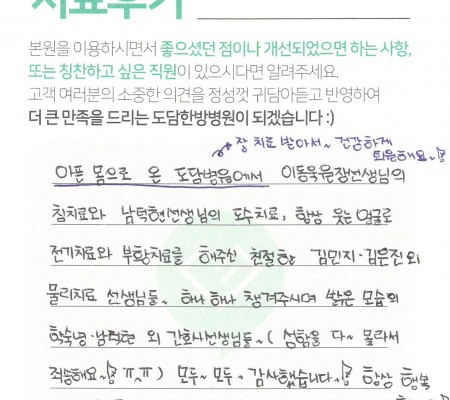 치료후기
본원을 이용하시면서 좋으셨던 점이나 개선되었으면 하는 사항,
또는 칭찬하고 싶은 직원이 있으시다면 알려주세요.
고객 여러분의 소중한 의견을 정성껏 귀담아듣고 반영하여
더 큰 만족을 드리는 도담한방병원이 되겠습니다 :)
잘 치료 받아서~ 건강하게
퇴원해요~!
아픈 몸으로 온 도담병원에서 이동욱원장선생님의
침치료와 남덕현선생님의 도수치료, 항상 웃는 얼굴로
전기치료와 부황치료를 해주신 친절한 김민지·김은진 외
물리치료 선생님들~ 하나 하나 챙겨주시며 밝은 모습의
남덕현 외 간호사선생님들~ ( 성함을 다~ 몰라서
죄송해요~! ㅠ.ㅠ ) 모두~ 모두~ 감사했습니다~! 항상 행복